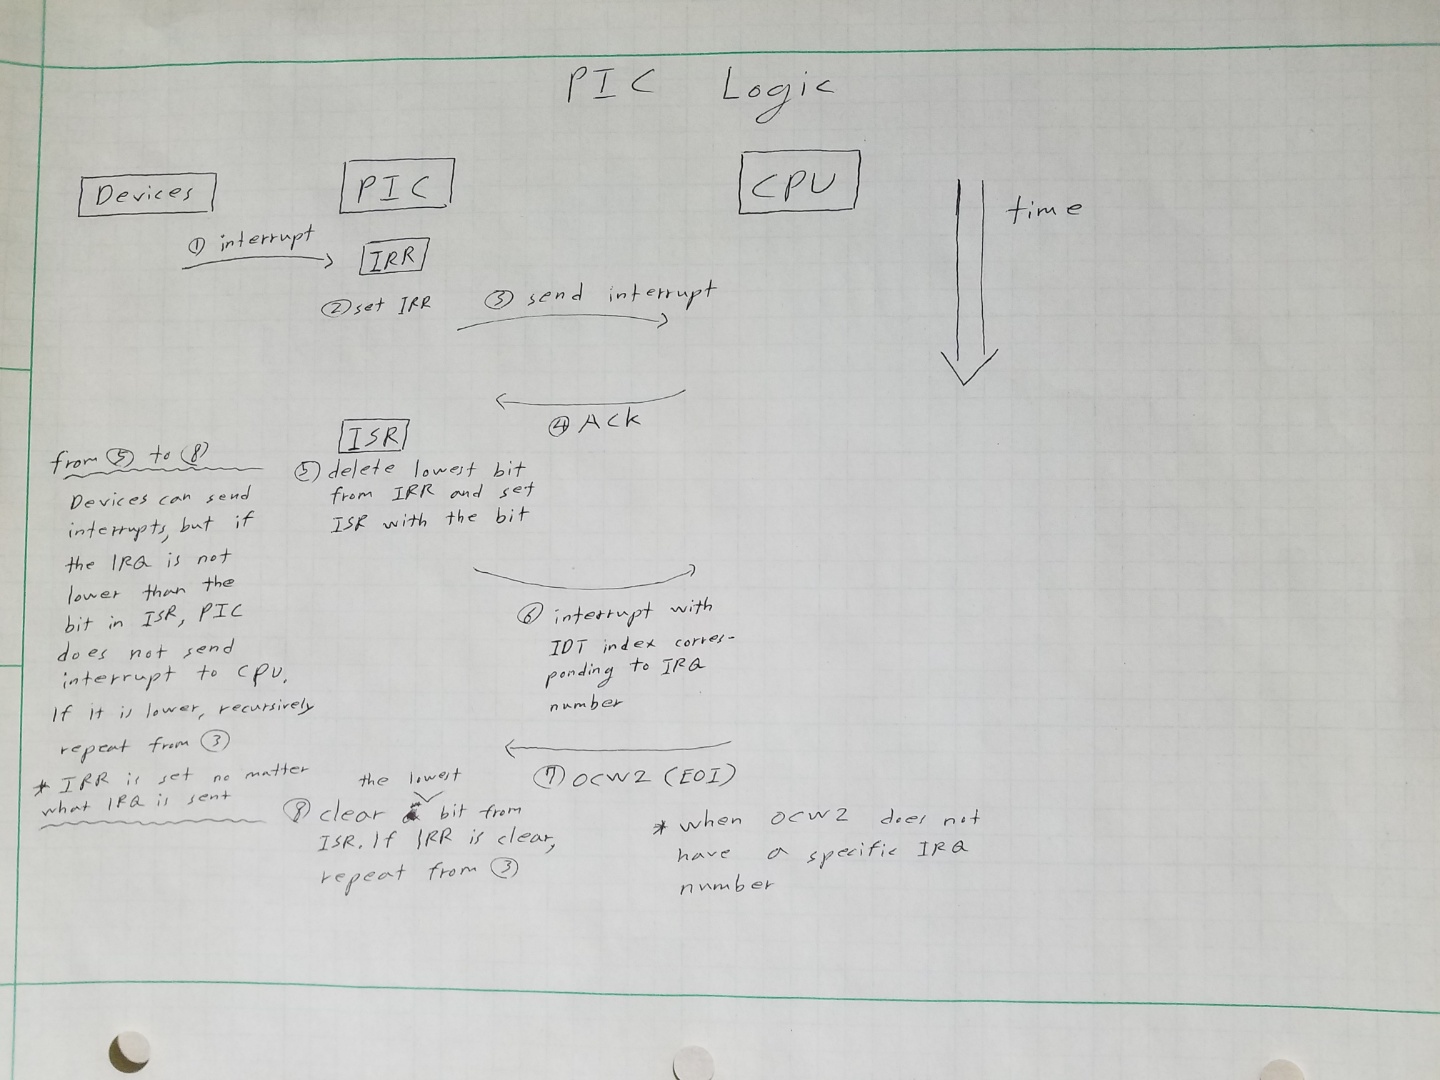 PIC Logic
Devices
PIC
CPU
time
① interrupt
IRR
② set IRR
③ send interrupt
④ Ack
ISR
⑤ delete lowest bit
from IRR and set
ISR with the bit
from ⑤ to ⑧
Devices can send
interrupts, but if
the IRQ is not
lower than the
bit in ISR, PIC
does not send
interrupt to CPU.
If it is lower, recursively
repeat from ③
* IRR is set no matter
what IRQ is sent
⑥ interrupt with
IDT index corres-
ponding to IRQ
number
⑦ OCW2 (EOI)
* when OCW2 does not
have a specific IRQ
number
the lowest
⑧ clear bit from
ISR. If IRR is clear,
repeat from ③